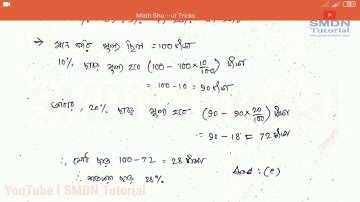 Math Sho--ut Tricks
SMDN
Tutorial
→ ধরি দ্রব্য মূল্য ছিল = 100 টাকা
10% ছাড়ে মূল্য হবে (100 - 100 × 10/100) টাকা
= 100 - 10 = 90 টাকা
আবার, 20% ছাড়ে মূল্য হবে (90 - 90 × 20/100) টাকা
= 90 - 18 = 72 টাকা
∴ মোট ছাড় 100 - 72 = 28 টাকা
∴ শতকরা ছাড় 28%. Ans : (c)
YouTube I SMDN Tutorial